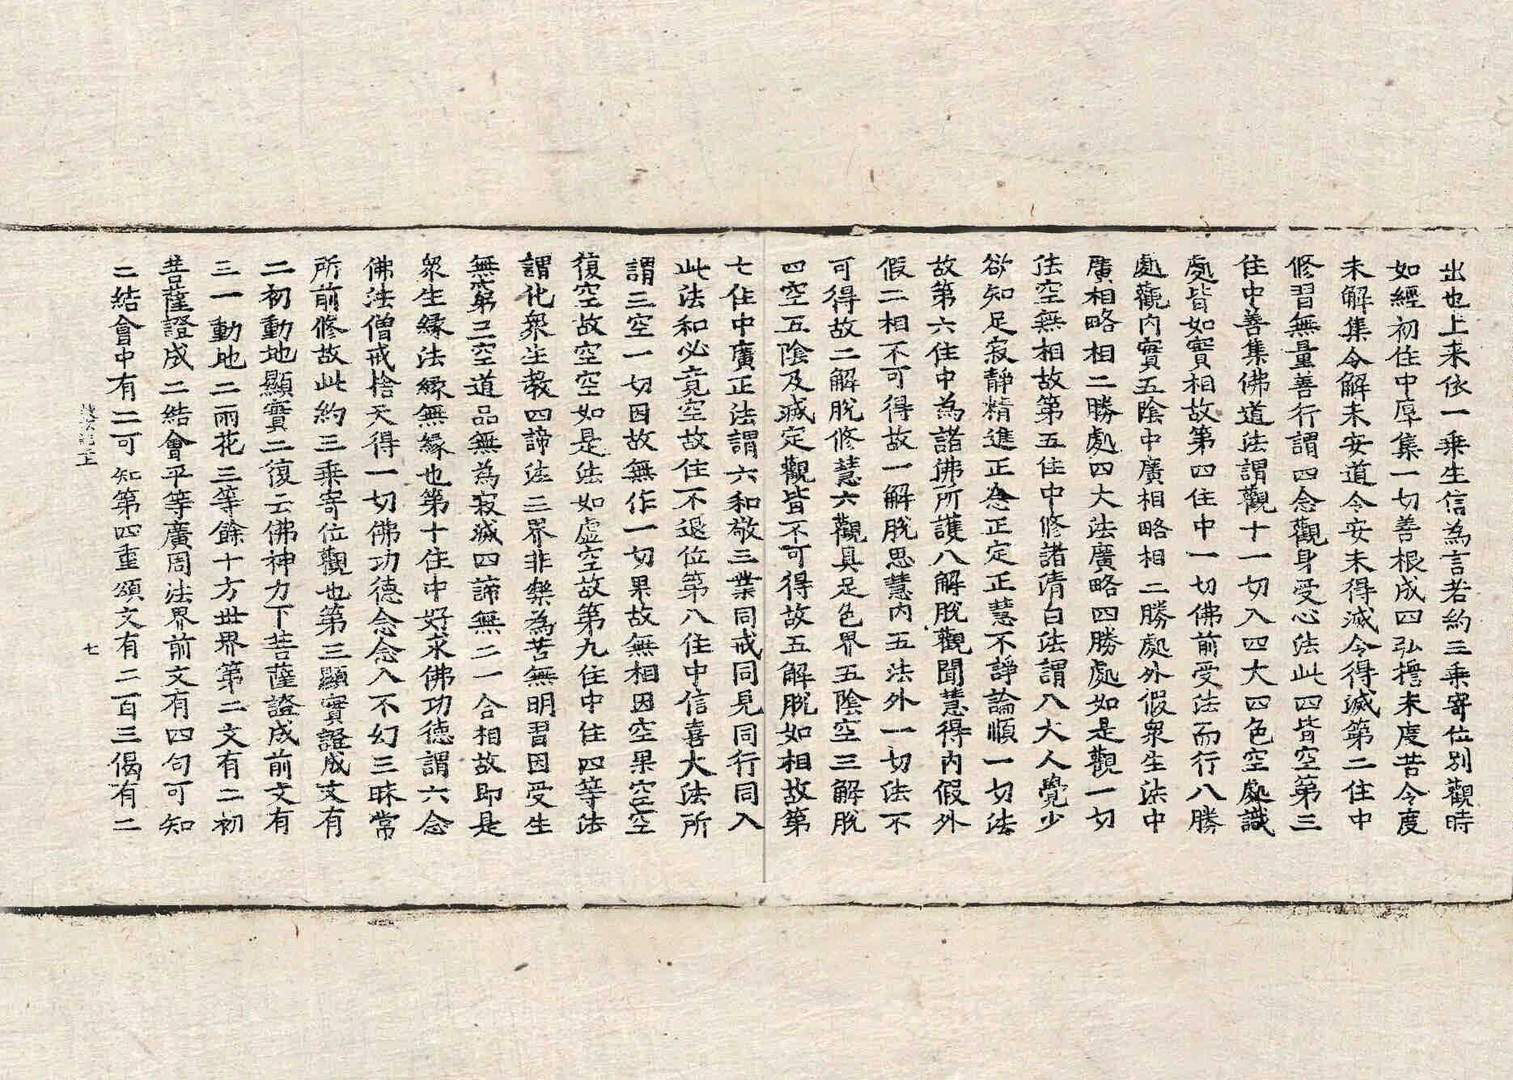 出也上来依一乗生信為言若約三乗寄位別觀時
如經初住中厚集一切善根成四弘檐未度苦令度
未解集令解未安道令安未得滅令得滅第二住中
修習無量善行謂四念觀身受心法此四皆空第三
住中善集佛道法謂觀十一切入四大四色空處識
處皆如實相故第四住中一切佛前受法而行八勝
處觀内實五陰中廣相略相二勝處外假衆生法中
廣相略相二勝處四大法廣略四勝處如是觀一切
法空無相故第五住中修諸清白法謂八大人覺少
欲知足寂靜精進正念正定正慧不諍論順一切法
故第六住中為諸佛所護八解脫觀聞慧得内假外
假二相不可得故一解脫思慧内五法外一切法不
可得故二解脫修慧六觀具足色界五陰空三解脫
四空五陰及滅定觀皆不可得故五解脫如相故第
七住中廣正法謂六和敬三業同戒同見同行同入
此法和必竟空故住不退位第八住中信喜大法所
謂三空一切因故無作一切果故無相因空果空空
復空故空空空如是法如虚空故第九住中住四等法
謂化衆生教四諦法三界非樂為苦無明習因受生
無窮第三空道品無為寂滅四諦無二一合相故即是
衆生緣法緣無緣也第十住中好求佛功德謂六念
佛法僧戒捨天得一切佛功德念念入不幻三昧常
所前修故此約三乗寄位觀也第三顯實證成文有
二初動地顯實二復云佛神力下菩薩證成前文有
三一動地二雨花三等餘十方世界第二文有二初
菩薩證成二結會平等廣周法界前文有四句可知
二結會中有二可知第四重頌文有二百三偈有二
七